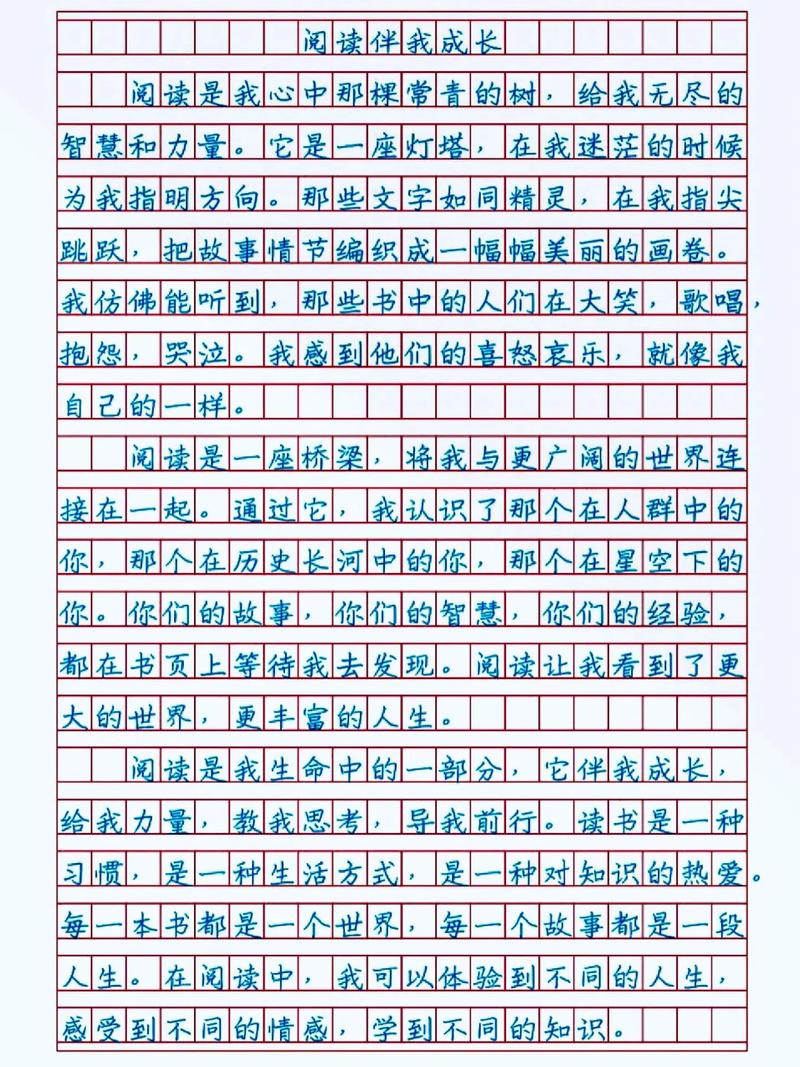 阅读伴我成长
阅读是我心中那棵常青的树，给我无尽的
智慧和力量。它是一座灯塔，在我迷茫的时候
为我指明方向。那些文字如同精灵，在我指尖
跳跃，把故事情节编织成一幅幅美丽的画卷。
我仿佛能听到，那些书中的人们在大笑，歌唱，
抱怨，哭泣。我感到他们的喜怒哀乐，就像我
自己的一样。
阅读是一座桥梁，将我与更广阔的世界连
接在一起。通过它，我认识了那个在人群中的
你，那个在历史长河中的你，那个在星空下的
你。你们的故事，你们的智慧，你们的经验，
都在书页上等待我去发现。阅读让我看到了更
大的世界，更丰富的人生。
阅读是我生命中的一部分，它伴我成长，
给我力量，教我思考，导我前行。读书是一种
习惯，是一种生活方式，是一种对知识的热爱。
每一本书都是一个世界，每一个故事都是一段
人生。在阅读中，我可以体验到不同的人生，
感受到不同的情感，学到不同的知识。